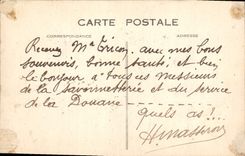 CARTE POSTALE
CORRESPONDANCE ADRESSE
Recevez Mr avec mes bons
souvenirs, bonne santé et bien
le bonjour a tous ces Messieurs
de la Savonnetterie et du service
de la Douane
quels as!